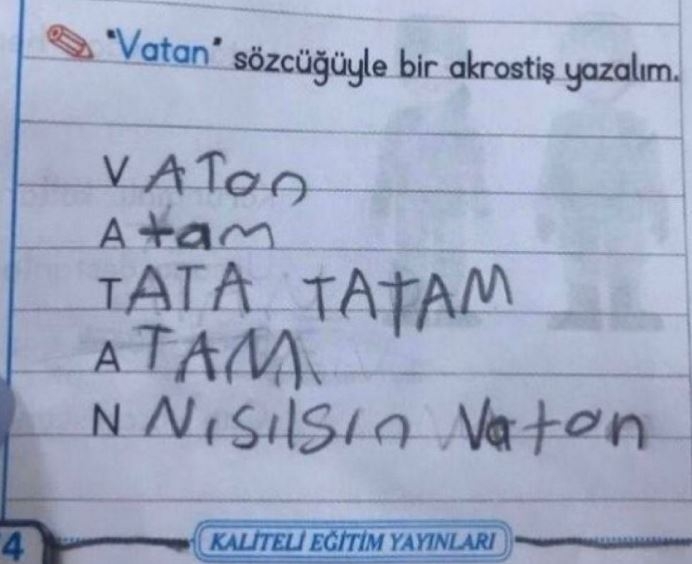 "Vatan" sözcüğüyle bir akrostiş yazalım.
VATan
Atam
TATA TATAM
ATAM
N NısılSın Vatan
4
KALİTELİ EĞİTİM YAYINLARI